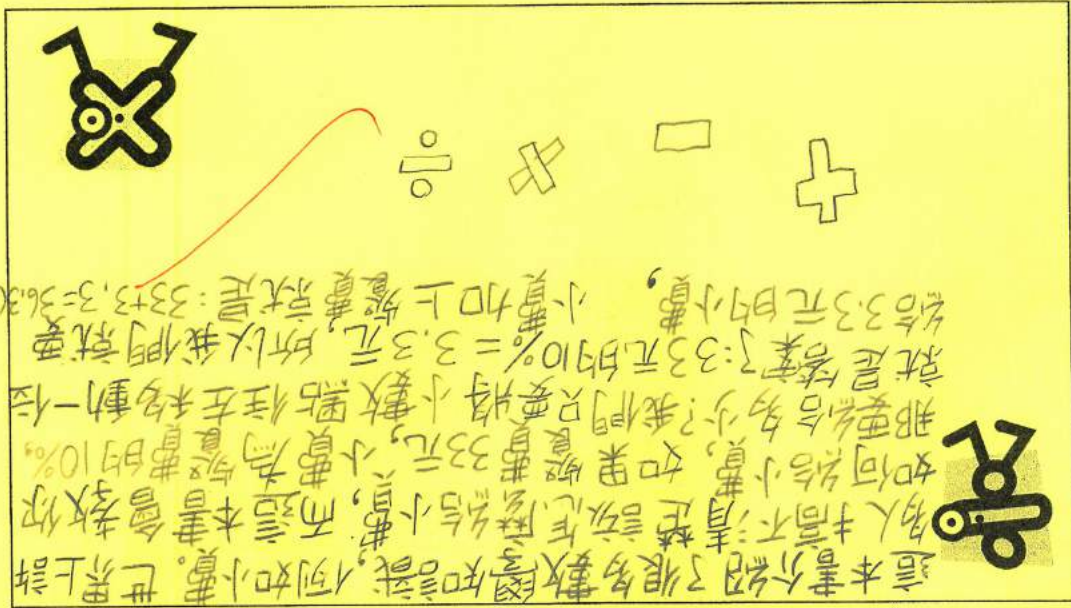 這本書介紹了很多數學知識,例如小費。世界上許
多人搞不清楚該怎麼給小費,而這本書會教你
如何給小費,如果餐費33元,小費為餐費的10%,
那要給多少?我們只要將小數點往左移動一位
就是答案了:33元的10%=3.3元,所以我們就要
給3.3元的小費, 小費加上餐費就是:33+3.3=36.3(
÷ × − +